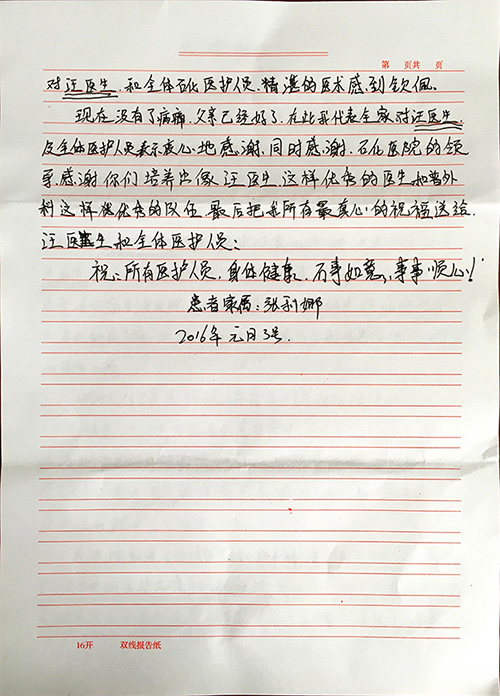 第 页共 页
对汪医生,和全体石化医护人员,精湛的医术感到钦佩。
现在没有了病痛,父亲已经好了,在此我代表全家对汪医生,
及全体医护人员表示衷心地感谢,同时感谢,石化医院的领
导,感谢你们培养出像汪医生,这样优秀的医生和普外
科这样优秀的队伍,最后把我所有最真心的祝福送给,
汪医生和全体医护人员:
祝:所有医护人员,身体健康,万事如意,事事顺心!
患者家属:张利娜
2016年元月3号.
16开 双线报告纸